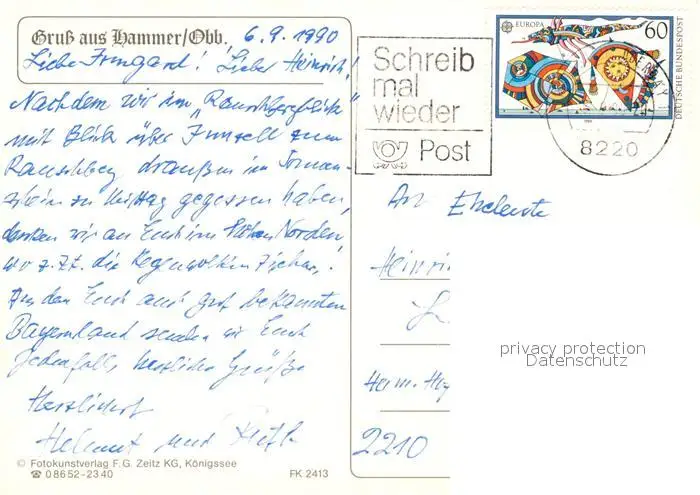 Gruß aus Hammer/Obb. 6.9.1990
Liebe Irmgard! Lieber Heinrich!
Nachdem wir im "Rauschbergblick"
mit Blick über Inzell zum
Rauschberg draußen im Sonnen-
schein zu Mittag gegessen haben,
denken wir an Euch im Hohen Norden,
wo z.Zt. die Regenwolken
Aus dem Euch auch gut bekannten
Bayernland senden wir Euch
jedenfalls herzliche Grüße
Herzlichst
Helmut und
© Fotokunstverlag F.G. Zeitz KG, Königssee
☎ 08652-2340 FK 2413
Schreib
mal
wieder
Post
EUROPA 60
DEUTSCHE BUNDESPOST
8220
An Eheleute
Heinri
Hein.
2210
privacy protection
Datenschutz